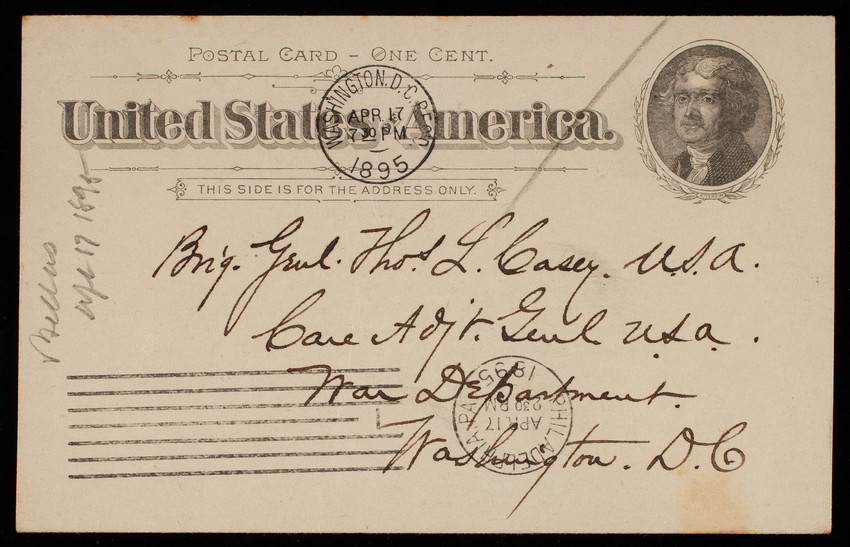 POSTAL CARD – ONE CENT.
United States of America.
THIS SIDE IS FOR THE ADDRESS ONLY.
WASHINGTON, D.C. REC'D
APR 17
7 30 PM
1895
Brig. Genl. Thos. L. Casey. U.S.A.
Care Adjt. Genl U.S.A.
War Department.
Washington. D.C
PHILADELPHIA PA
APR 17
2 30 PM
1895
Apl 17 1895